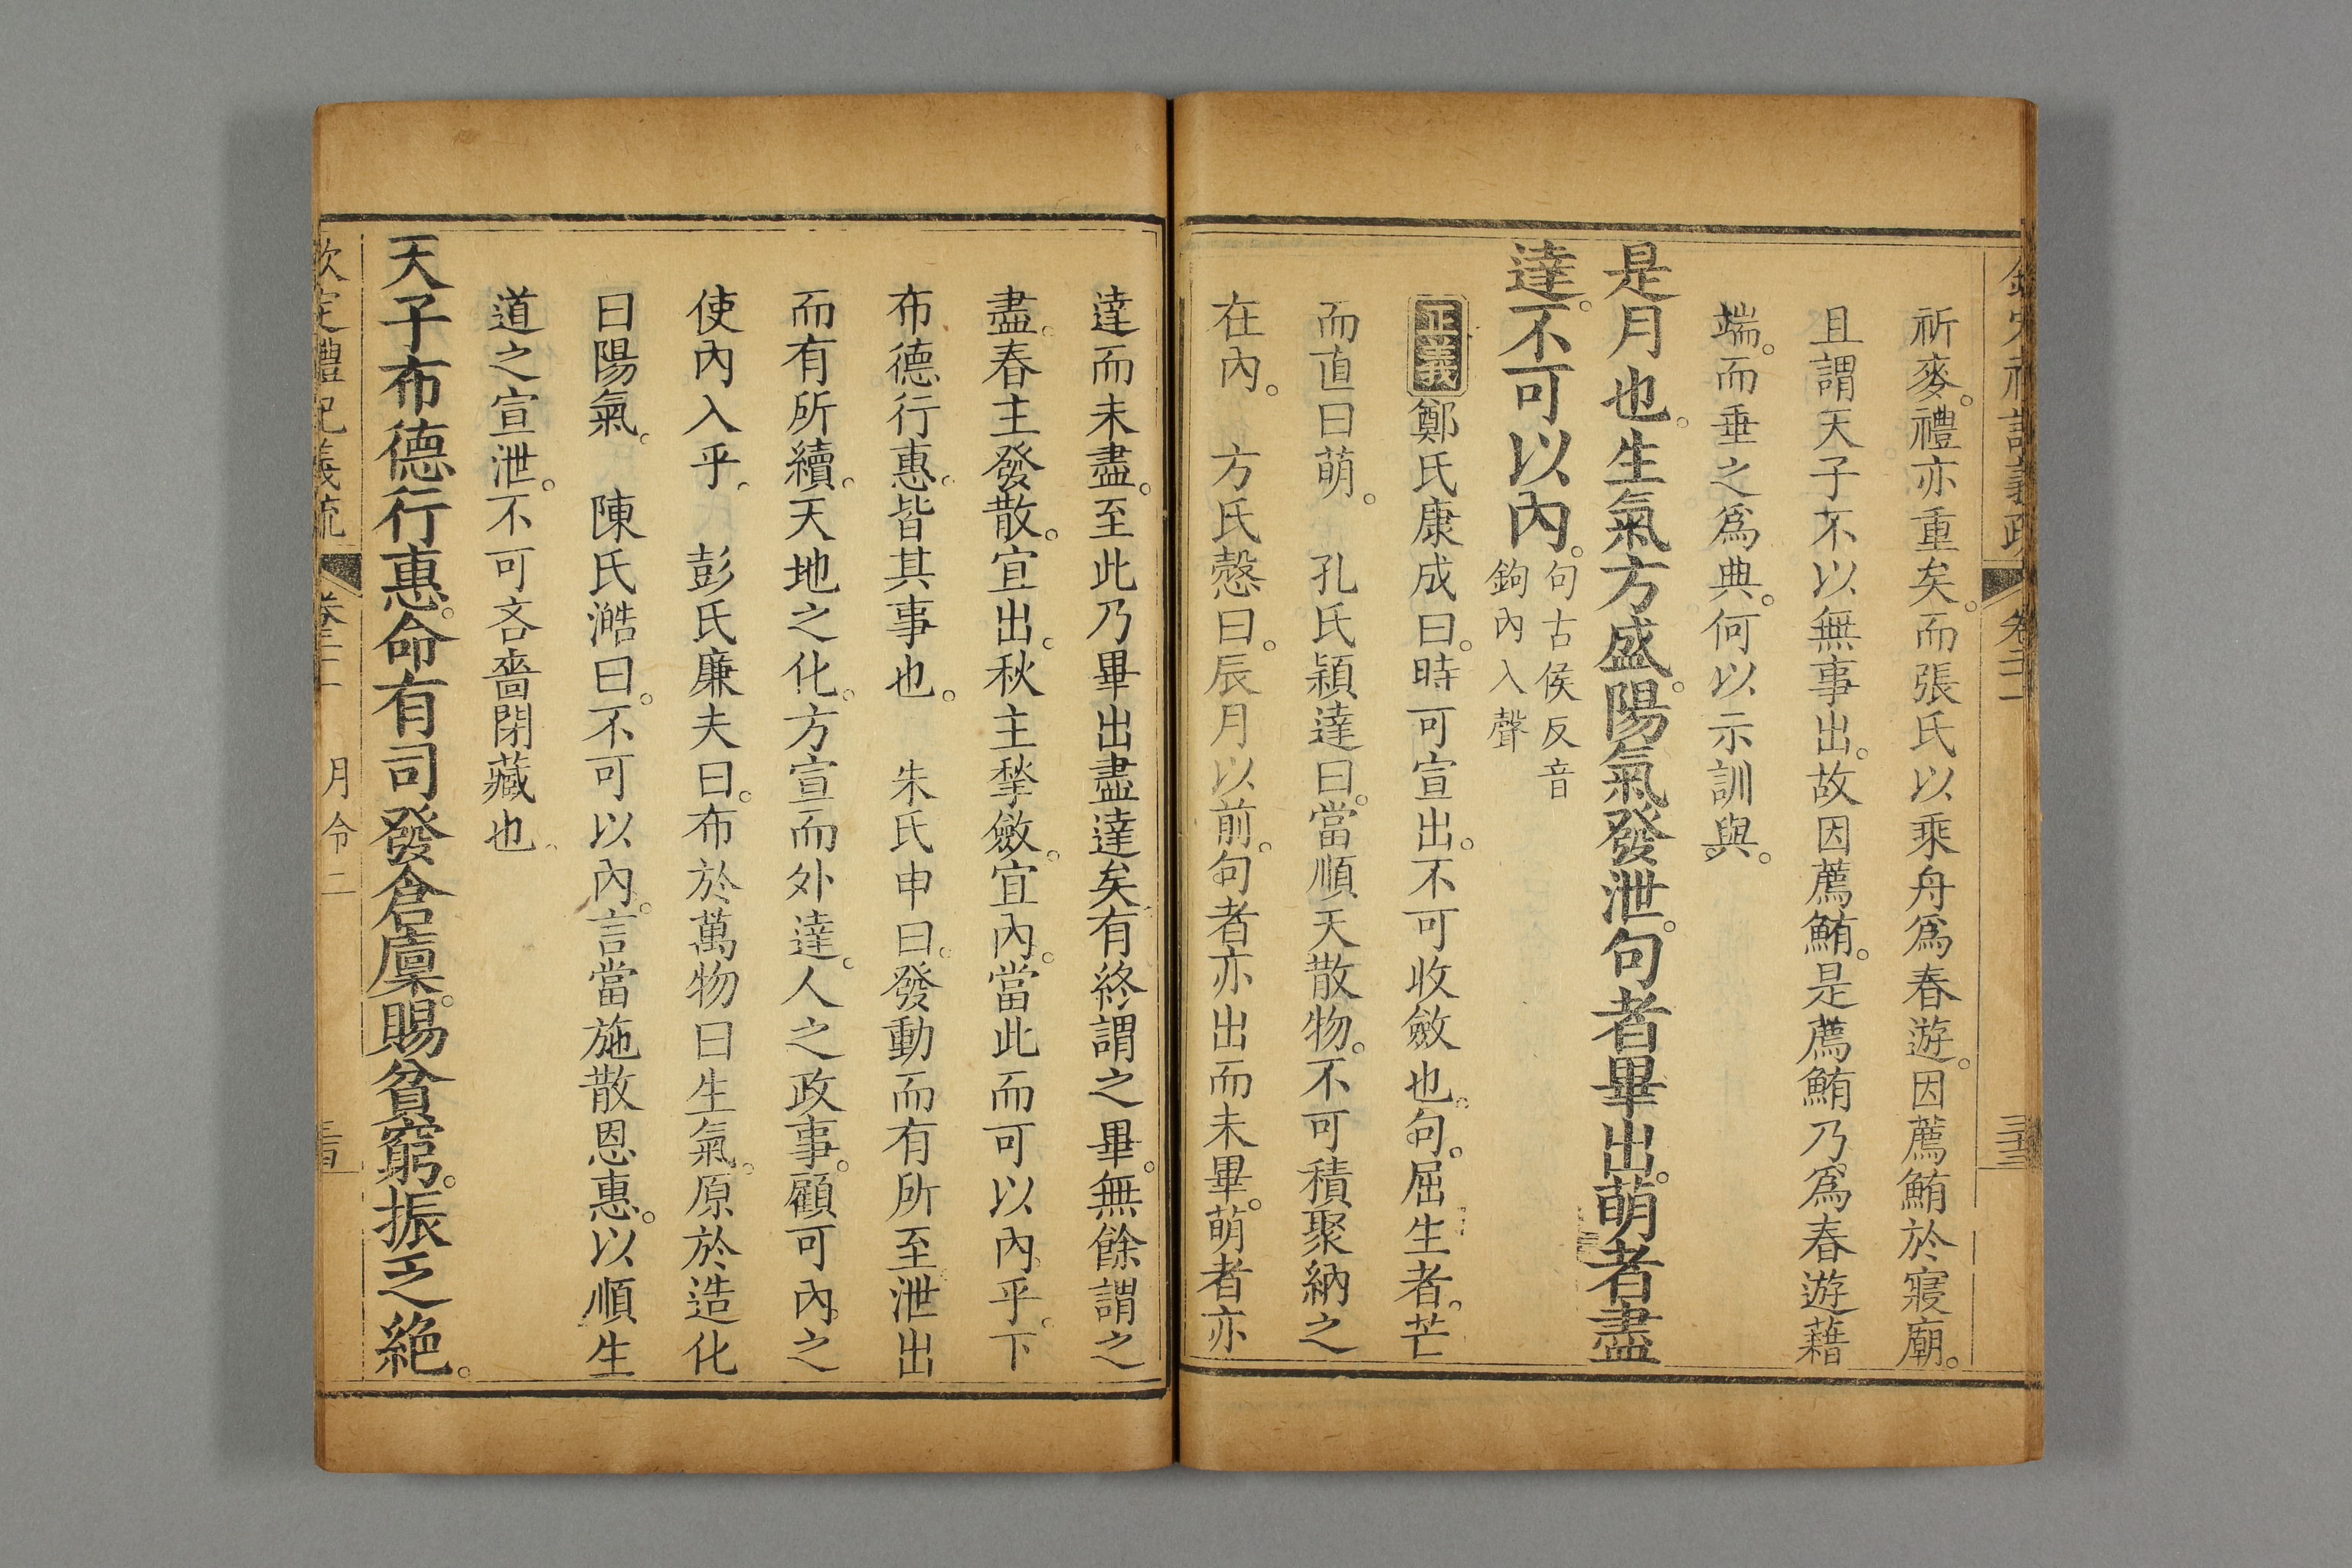 祈麥。禮亦重矣。而張氏以乘舟爲春遊。因薦鮪於寢廟。
且謂天子不以無事出。故因薦鮪。是薦鮪乃爲春遊藉
端。而垂之爲典。何以示訓與。
是月也。生氣方盛。陽氣發泄。句者畢出。萌者盡
達。不可以內。句古侯反音
鉤內入聲
正義鄭氏康成曰。時可宣出。不可收斂也。句。屈生者。芒
而直曰萌。 孔氏穎達曰。當順天散物。不可積聚納之
在內。 方氏慤曰。辰月以前。句者亦出而未畢。萌者亦
達而未盡。至此乃畢出盡達矣。有終謂之畢。無餘謂之
盡。春主發散。宜出。秋主揫斂。宜內。當此而可以內乎。下
布德行惠。皆其事也。 朱氏申曰。發動而有所至。泄出
而有所續。天地之化。方宣而外達。人之政事。顧可內之
使內入乎。 彭氏廉夫曰。布於萬物曰生氣。原於造化
曰陽氣。 陳氏澔曰。不可以內。言當施散恩惠。以順生
道之宣泄。不可吝嗇閉藏也。
天子布德行惠。命有司發倉廩。賜貧窮。振乏絶。
欽定禮記義疏 卷二十一 月令二